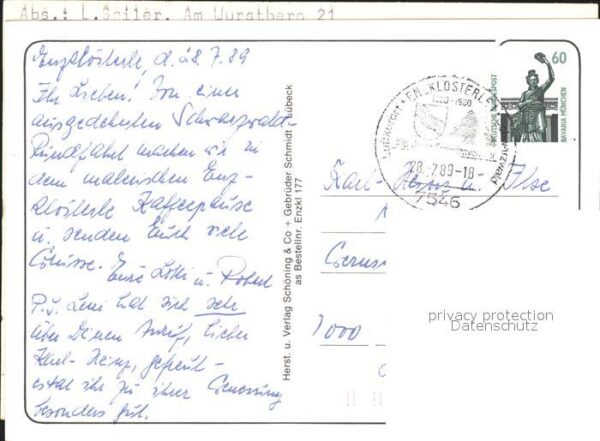 Abs.: L.Sciler. Am Wurstberg 21
Enzklösterle, d. 28.7.89
Ihr Lieben! Von einer
ausgedehnten Schwarzwald-
Rundfahrt machen wir in
dem malerischen Enz-
klösterle Kaffeepause
u. senden Euch viele
Grüsse. Eure Lotti u. Robert
P.S. Leni hat sich sehr
über Deinen Anruf, lieber
Karl-Heinz, gefreut –
es tat ihr zu ihrer Genesung
besonders gut.
Herst. u. Verlag Schöning & Co + Gebrüder Schmidt Lübeck
as Bestellnr. Enzkl 177
60
DEUTSCHE BUNDESPOST
BAVARIA MÜNCHEN
ENZKLÖSTERLE
28.-7.89-18
7546
Karl-Heinz u. Ilse
7000
privacy protection
Datenschutz